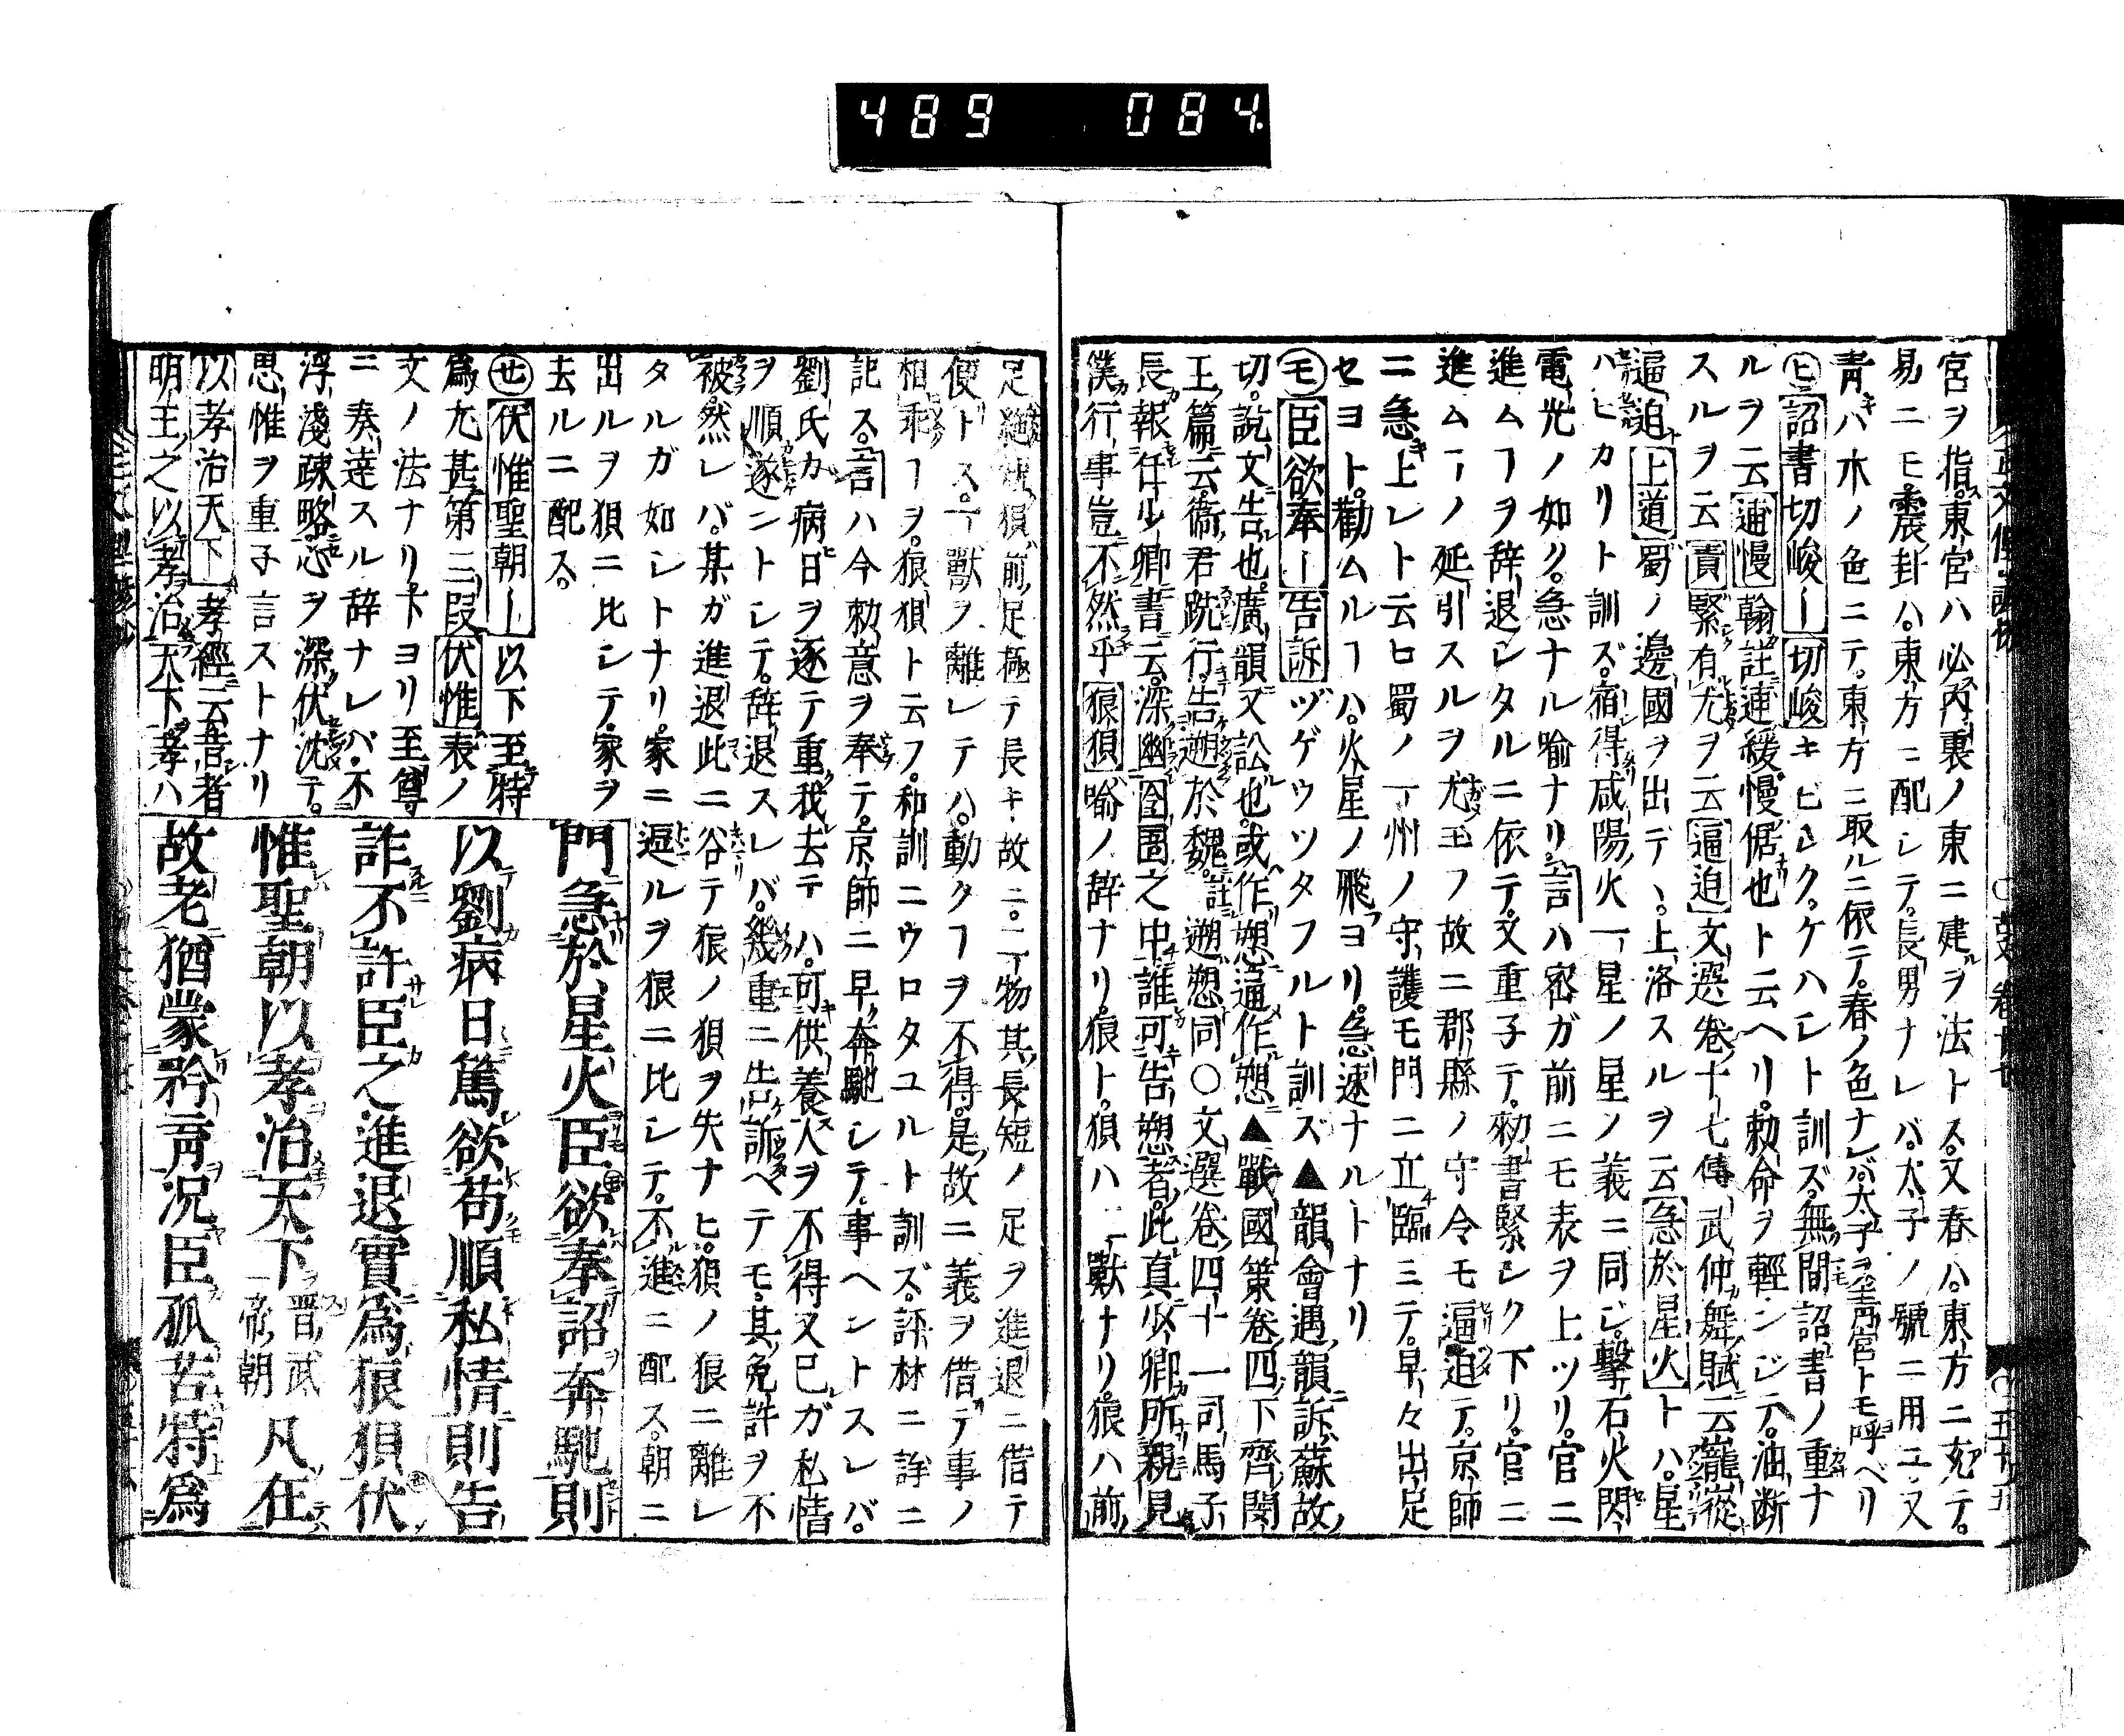 489 084.
宮ヲ指。東宮ハ必内裏ノ東ニ建ルヲ法トス。又春ハ東方ニ充テ。
易ニモ震卦ハ。東方ニ配シテ。長男ナレバ。太子ノ號ニ用ユ。又
青ハ木ノ色ニテ。東方ニ取ルニ依テ。春ノ色ナレバ。太子ヲ青宮トモ呼ベリ
㋪詔書切峻ー切峻キビシク。ケハシト訓ズ。無間詔書ノ重ナ
ルヲ云逋慢翰註逋緩慢倨也ト云ヘリ。勅命ヲ輕ンジテ。油断
スルヲ云責緊有尤ヲ云逼迫文選卷十七傅武仲舞賦ニ云
逼迫上道蜀ノ邊國ヲ出テヽ。上洛スルヲ云急於星火トハ。星
ハヒカリト訓ズ。宿得咸陽火一星ノ星ノ義ニ同ジ。擊石火閃
電光ノ如ク。急ナル喩ナリ言ハ密ガ前ニモ表ヲ上ツリ。官ニ
進ムヿヲ辞退シタルニ依テ。文重子テ。勅書緊シク下リ。官ニ
進ムヿノ延引スルヲ尤玉フ故ニ郡縣ノ守令モ逼迫テ。京師
ニ急上レト云ヒ蜀ノ一州ノ守護モ門ニ立臨ミテ。早々出足
セヨト。勸ムルヿハ。火星ノ飛ヨリ。急速ナルトナリ
㋲臣欲奉ー告訴ツゲウツタフルト訓ズ▲韻會遇韻訴蘇故
切。說文告也。廣韻又訟也。或作愬通作愬▲戰國策卷四下齊閔
王篇云。衞君跣行。告遡於魏。註遡愬同○文選卷四十一司馬子
長報任少卿書云。深幽囹圄之中誰可告愬者。此真少卿所親見
僕行事豈不然乎狼狽喩ノ辞ナリ。狼ト。狽ハ二獸ナリ。狼ハ前
足絕短。狽前足極テ長キ故ニ。二物其長短ノ足ヲ進退ニ借テ
便トス。一獸ヲ離レテハ。動クヿヲ不得。是故ニ義ヲ借テ事ノ
相乖ヿヲ。狼狽ト云フ。和訓ニウロタユルト訓ズ。評林ニ詳ニ
記ス。言ハ今勅意ヲ奉テ。京師ニ早奔馳シテ。事ヘントスレバ。
劉氏カ病日ヲ逐テ重我去テハ。可供養人ヲ不得又己ガ私情
ヲ順遂ントシテ。辞退スレバ。幾重ニ告訴ヘテモ。其免許ヲ不
被。然レバ。某ガ進退此ニ谷テ狼ノ狽ヲ失ナヒ。狽ノ狼ニ離レ
タルガ如シトナリ。家ニ逗ルヲ狼ニ比シテ。不進ニ配ス。朝ニ
出ルヲ狽ニ比シテ。家ヲ
去ルニ配ス。
㋝伏惟聖朝ー以下至特
爲尤甚第三段伏惟表ノ
文ノ法ナリ下ヨリ至尊
ニ奏達スル辞ナレバ。不
浮淺疎略。心ヲ深伏沈テ。
思惟ヲ重子言ストナリ
以孝治天下孝經ニ云昔者
明王之以孝治天下孝ハ
門急於星火臣欲奉詔奔馳則
以劉病日篤欲苟順私情則告
訴不許臣之進退實爲狼狽伏
惟聖朝以孝治天下晋武帝朝凡在
故老猶蒙矜育況臣孤苦特爲